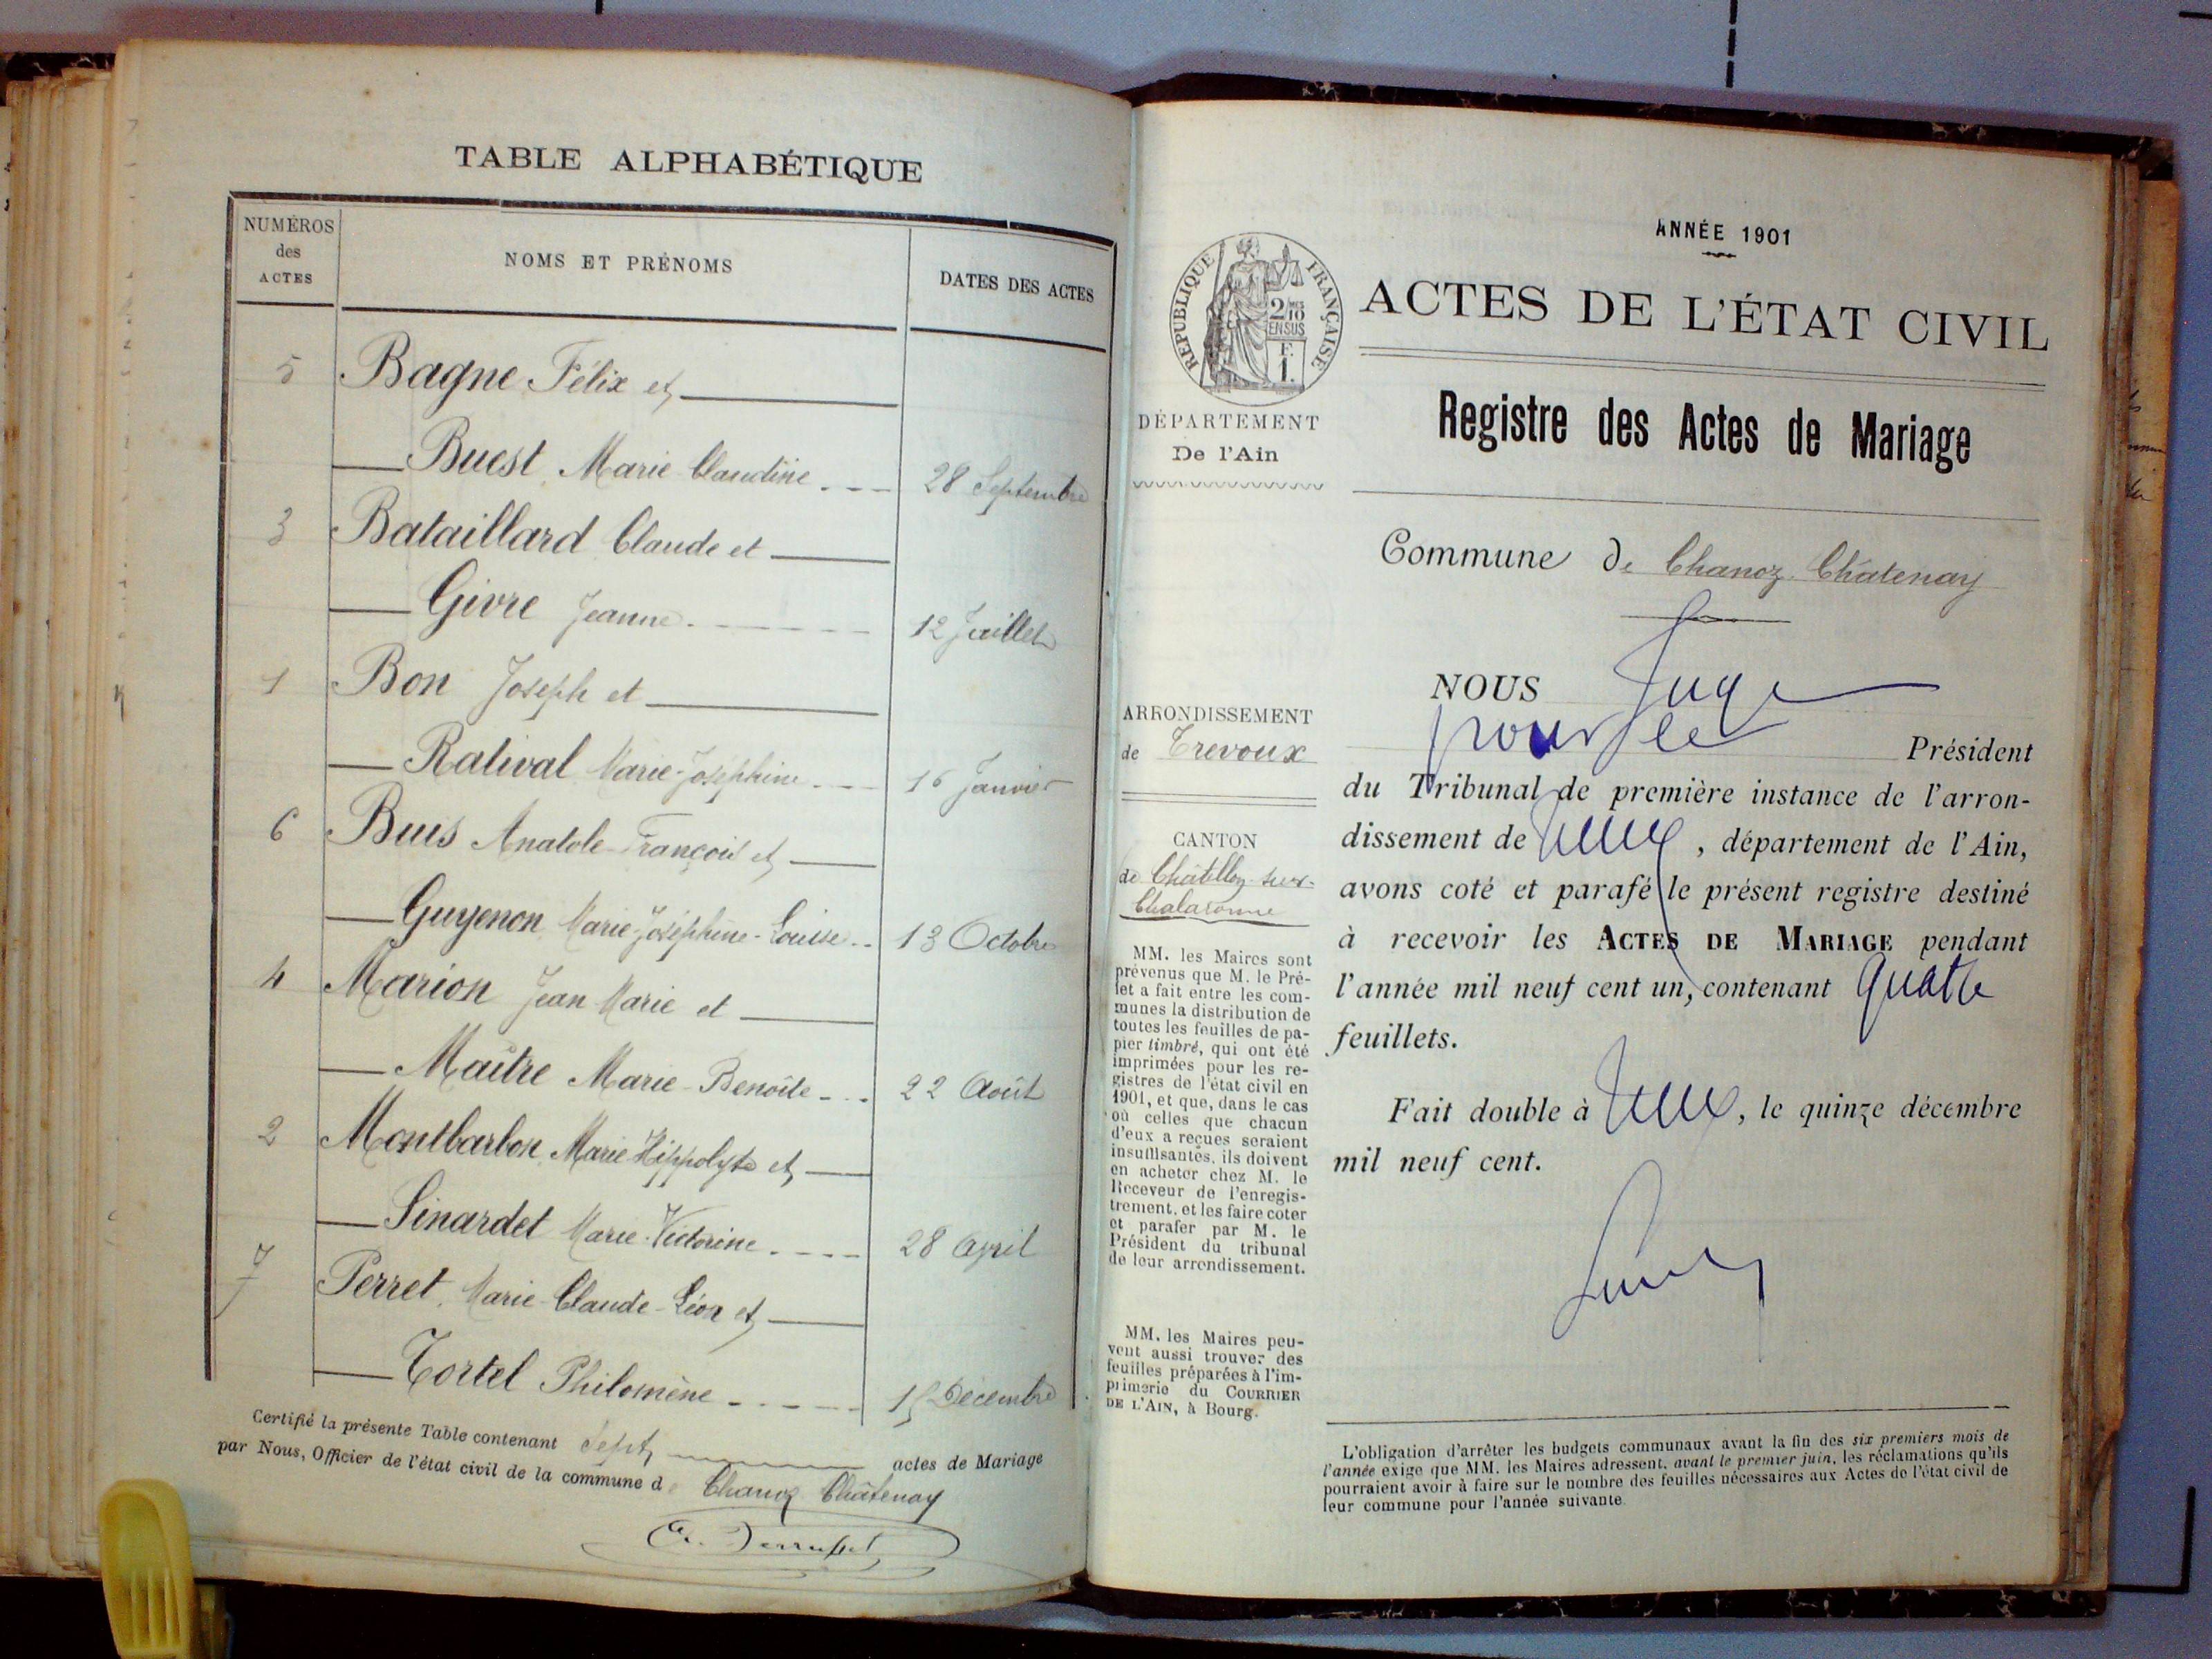 TABLE ALPHABÉTIQUE
NUMÉROS
des
ACTES
NOMS ET PRÉNOMS
DATES DES ACTES
5 Bagne Félix et
Buest Marie Claudine 28 Septembre
3 Bataillard Claude et
Givre Jeanne 12 Juillet
1 Bon Joseph et
Ratival Marie-Joséphine 16 Janvier
6 Buis Anatole François et
Guyenon Marie-Joséphine-Louise 13 Octobre
4 Marion Jean Marie et
Maitre Marie-Benoîte 22 Août
2 Montbarbon Marie Hippolyte et
Sinardet Marie-Victorine 28 Avril
7 Perret Marie-Claude-Léon et
Tortel Philomène 15 Décembre
Certifié la présente Table contenant Sept actes de Mariage
par Nous, Officier de l'état civil de la commune de Chanoz Châtenay
ANNÉE 1901
RÉPUBLIQUE FRANÇAISE
2/10
EN SUS
F.
1.
ACTES DE L'ÉTAT CIVIL
DÉPARTEMENT
De l'Ain
Registre des Actes de Mariage
Commune de Chanoz Châtenay
ARRONDISSEMENT
de Trevoux
CANTON
de Châtillon-sur-
Chalaronne
MM. les Maires sont
prévenus que M. le Pré-
fet a fait entre les com-
munes la distribution de
toutes les feuilles de pa-
pier timbré, qui ont été
imprimées pour les re-
gistres de l'état civil en
1901, et que, dans le cas
où celles que chacun
d'eux a reçues seraient
insuffisantes, ils doivent
en acheter chez M. le
Receveur de l'enregis-
trement, et les faire coter
et parafer par M. le
Président du tribunal
de leur arrondissement.
MM. les Maires peu-
vent aussi trouver des
feuilles préparées à l'im-
primerie du COURRIER
DE L'AIN, à Bourg.
NOUS Juge
pour le Président
du Tribunal de première instance de l'arron-
dissement de , département de l'Ain,
avons coté et parafé le présent registre destiné
à recevoir les ACTES DE MARIAGE pendant
l'année mil neuf cent un, contenant quatre
feuillets.
Fait double à , le quinze décembre
mil neuf cent.
L'obligation d'arrêter les budgets communaux avant la fin des six premiers mois de
l'année exige que MM. les Maires adressent, avant le premier juin, les réclamations qu'ils
pourraient avoir à faire sur le nombre des feuilles nécessaires aux Actes de l'état civil de
leur commune pour l'année suivante.